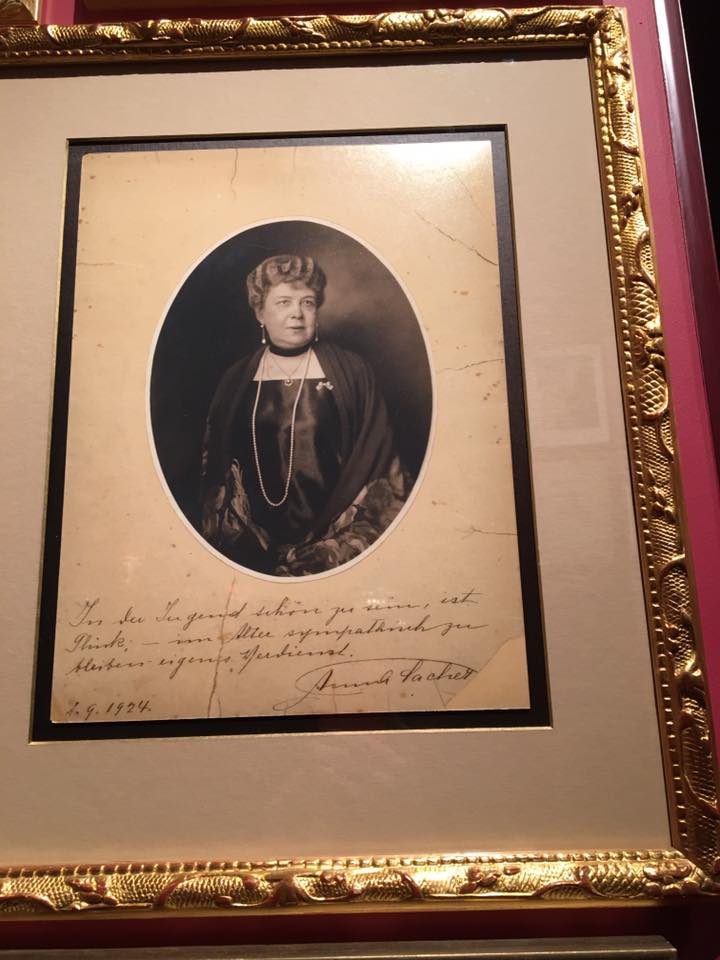 In der Jugend schön zu sein, ist
Glück, – im Alter sympathisch zu
bleiben eigenes Verdienst.
Anna Sacher
2. 9. 1924.